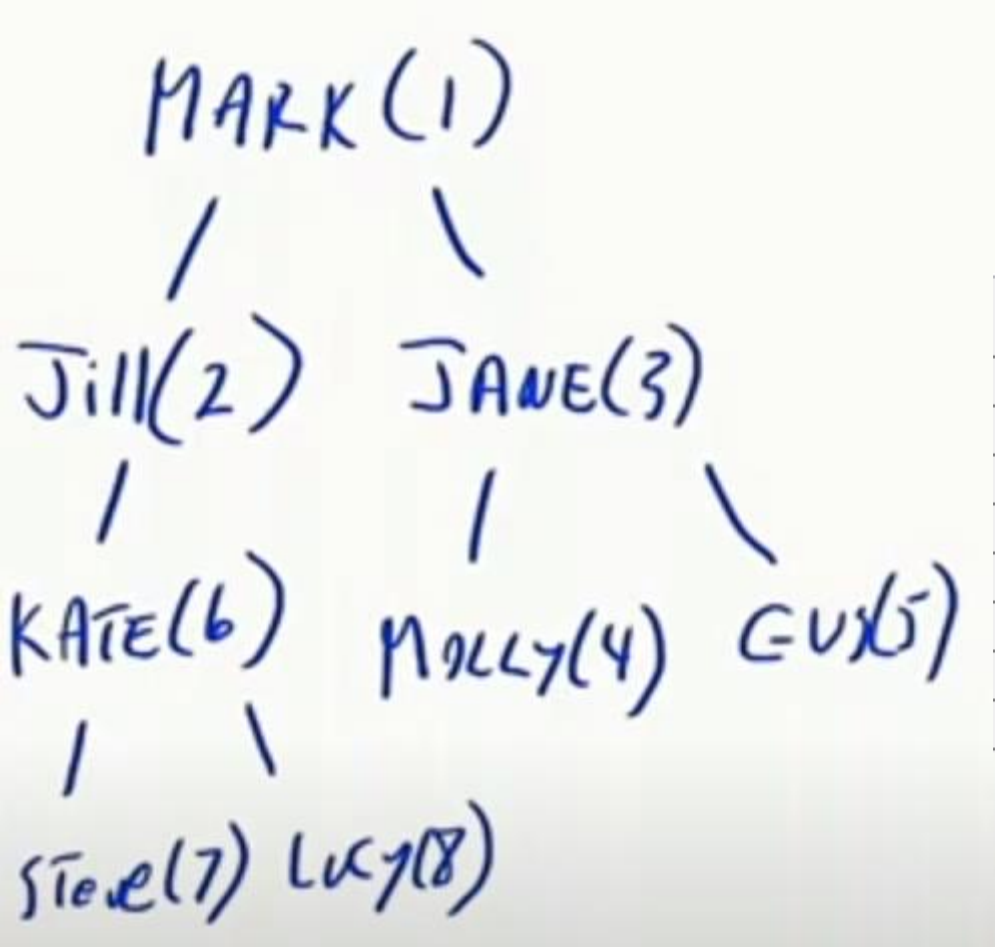 MARK(1)
Jill(2) JANE(3)
KATE(6) MOLLY(4) GUS(5)
Steve(7) Lucy(8)